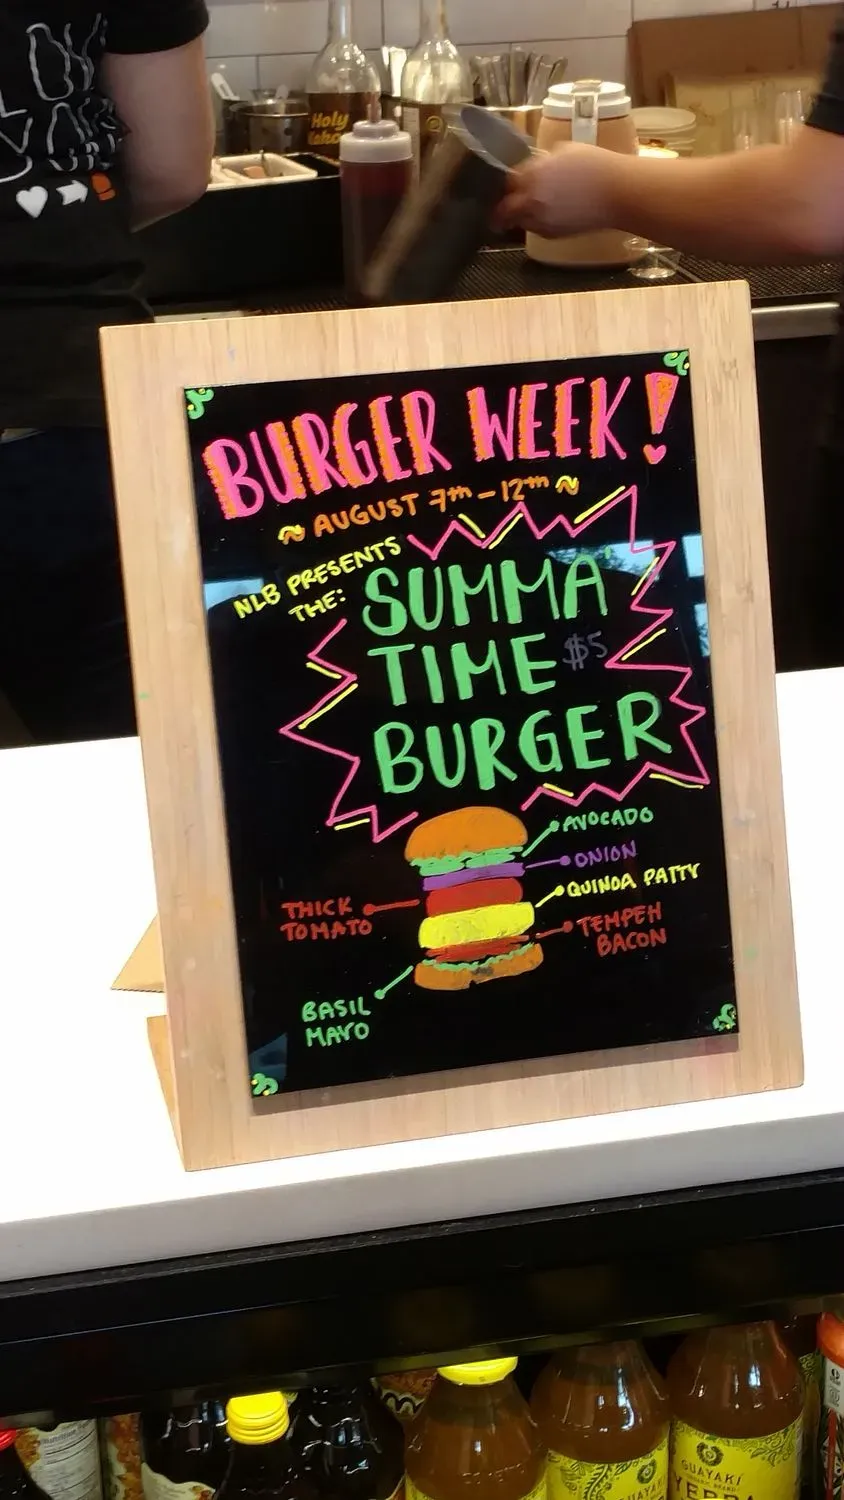 Holy
BURGER WEEK!
~ AUGUST 7th - 12th ~
NLB PRESENTS
THE:
SUMMA'
TIME $5
BURGER
AVOCADO
ONION
QUINOA PATTY
THICK
TOMATO
TEMPEH
BACON
BASIL
MAYO
GUAYAKI
YERBA